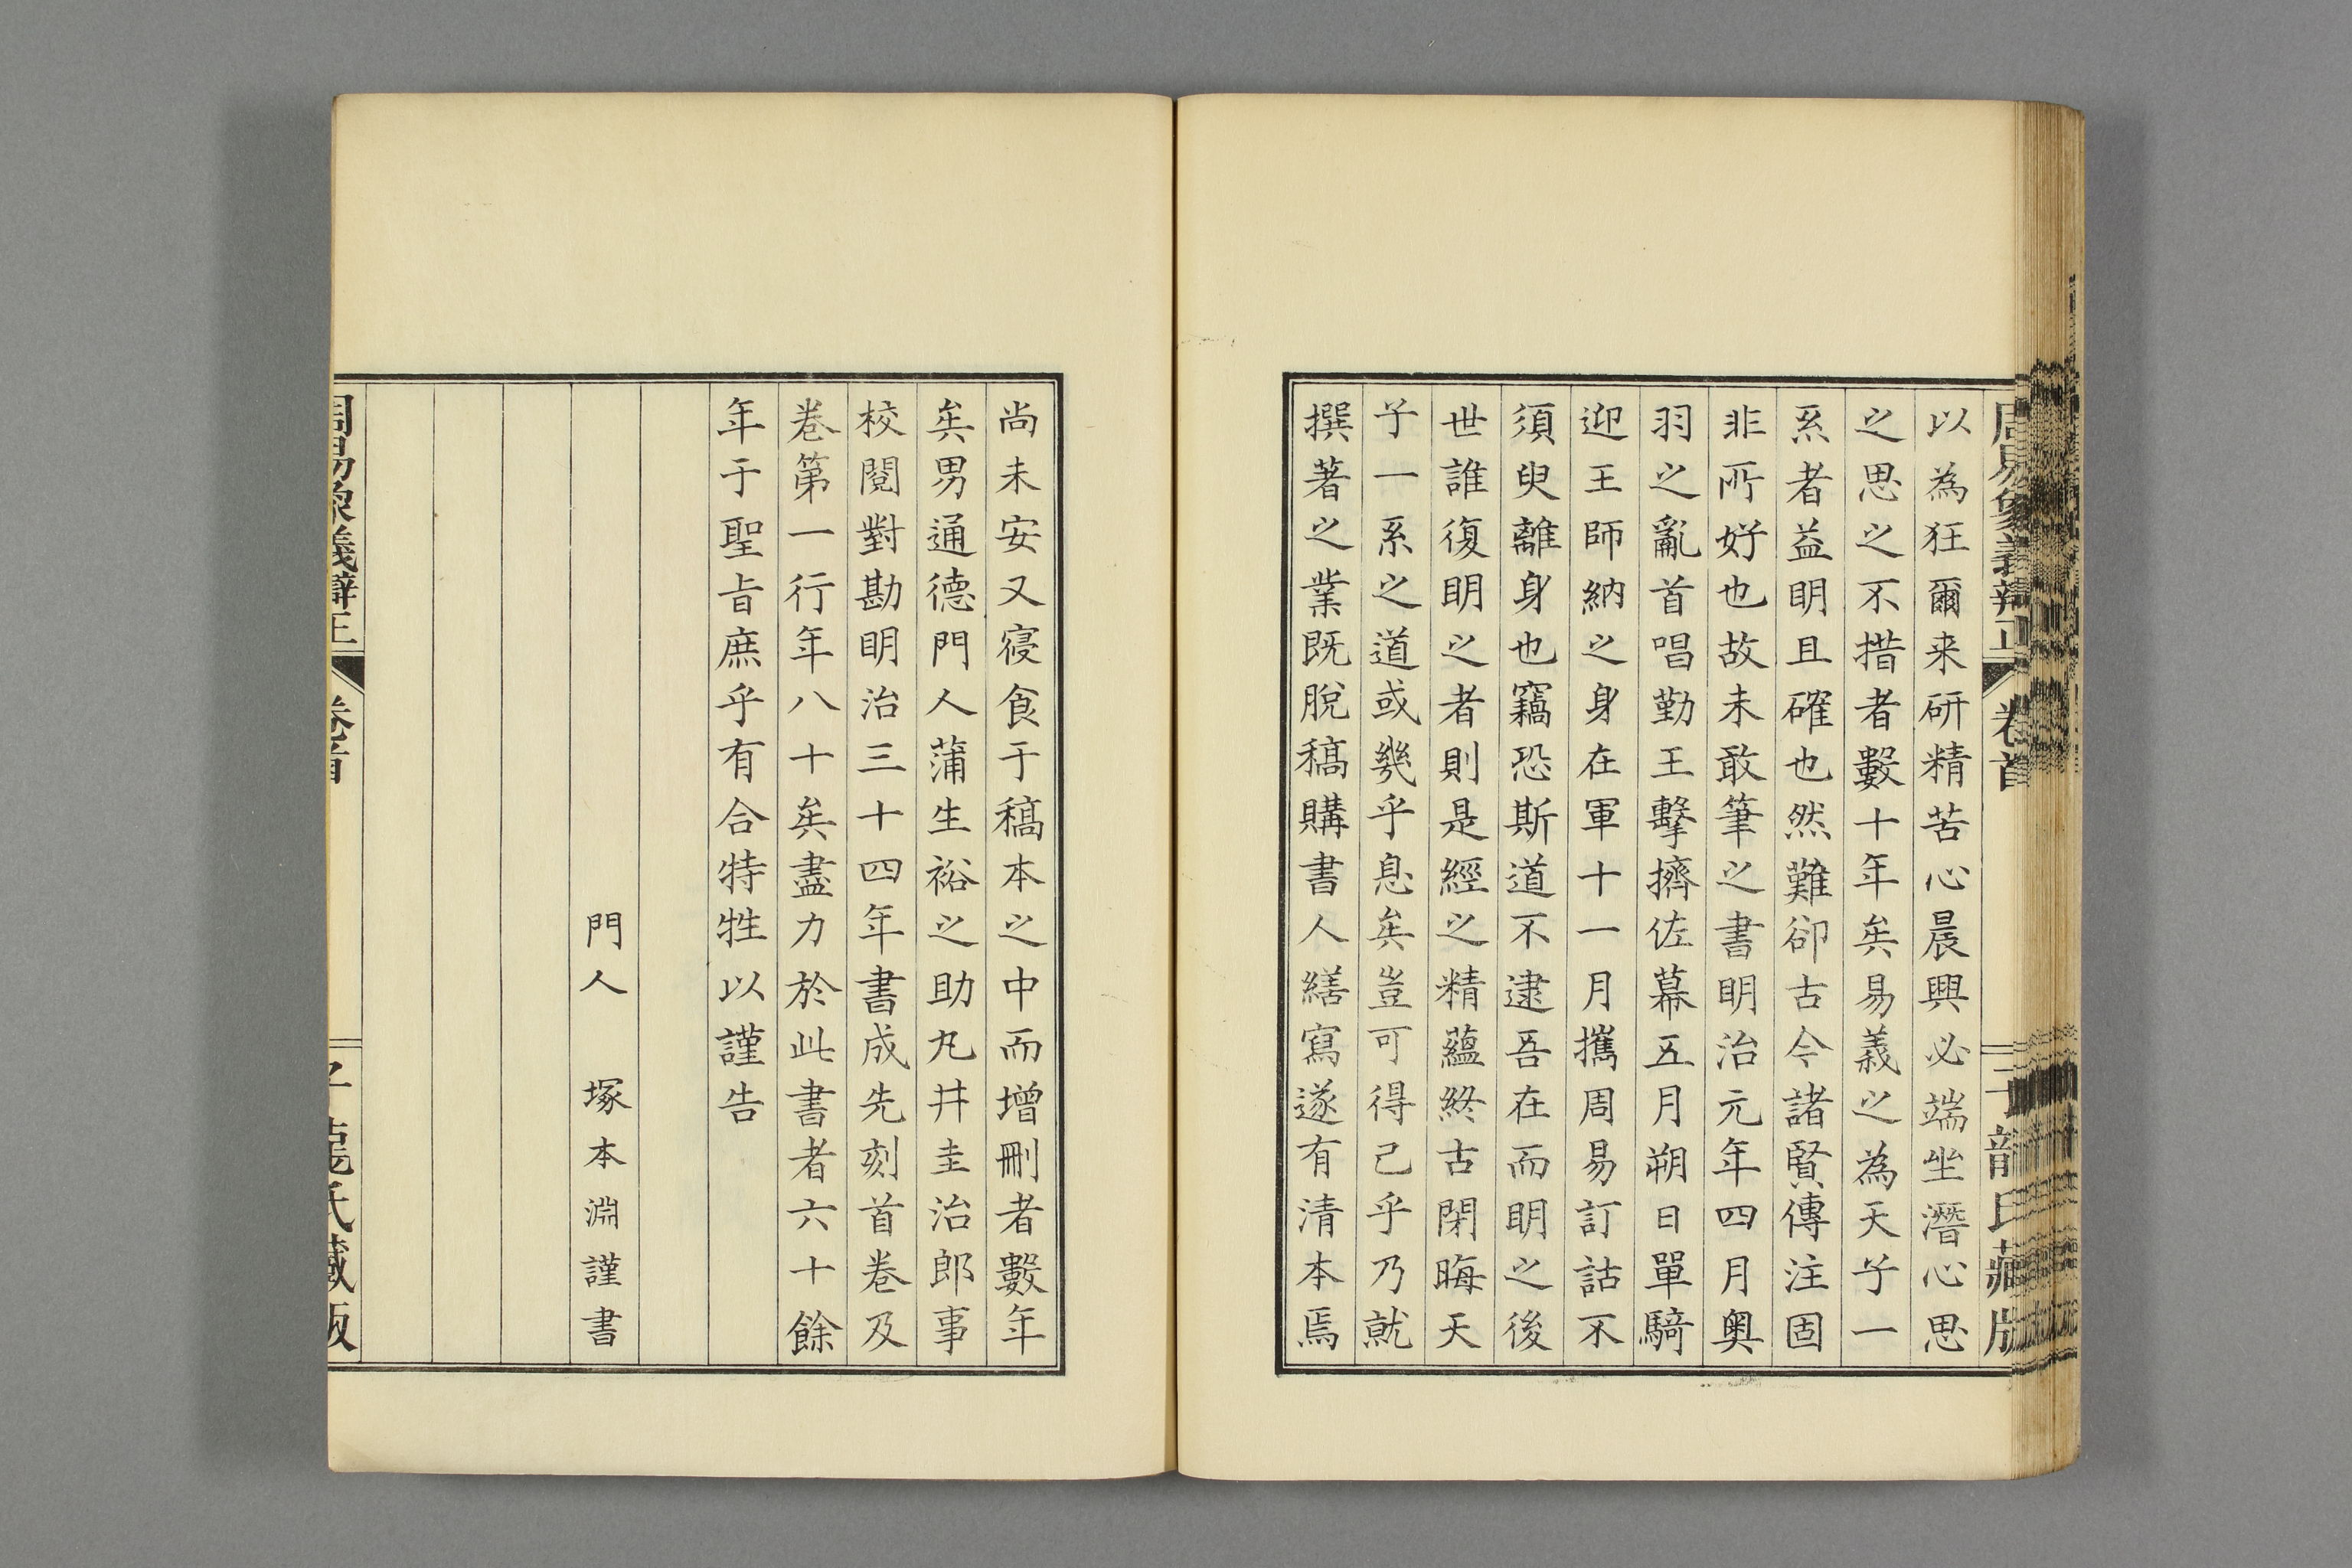 周易象義辯正
卷首
子龍氏藏版
以為狂爾来研精苦心晨興必端坐潛心思
之思之不措者數十年矣易義之為天子一
系者益明且確也然難卻古今諸賢傳注固
非所好也故未敢筆之書明治元年四月奥
羽之亂首唱勤王擊擠佐幕五月朔日單騎
迎王師納之身在軍十一月攜周易訂詁不
須臾離身也竊恐斯道不逮吾在而明之後
世誰復明之者則是經之精蘊終古閉晦天
子一系之道或幾乎息矣豈可得已乎乃就
撰著之業既脫稿購書人繕寫遂有清本焉
尚未安又寝食于稿本之中而增刪者數年
矣男通德門人蒲生裕之助丸井圭治郎事
校閱對勘明治三十四年書成先刻首卷及
卷第一行年八十矣盡力於此書者六十餘
年于聖旨庶乎有合特牲以謹告
門人 塚本淵謹書
周易象義辯正
卷首
子龍氏藏版